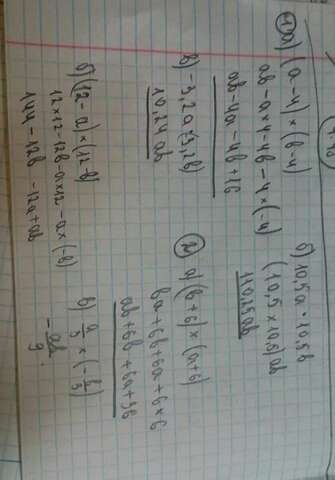 1) а) (a-4)×(b-4)
ab-a×4-4b-4×(-4)
ab-4a-4b+16
б) 10,5a·10,5b
(10,5×10,5)ab
110,25ab
в) -3,2a·(-3,2b)
10,24ab
2) а) (b+6)×(a+6)
ba+6b+6a+6×6
ab+6b+6a+36
б) (12-a)×(12-b)
12×12-12b-a×12-a×(-b)
144-12b-12a+ab
в) a/3×(-b/3)
-ab/9.